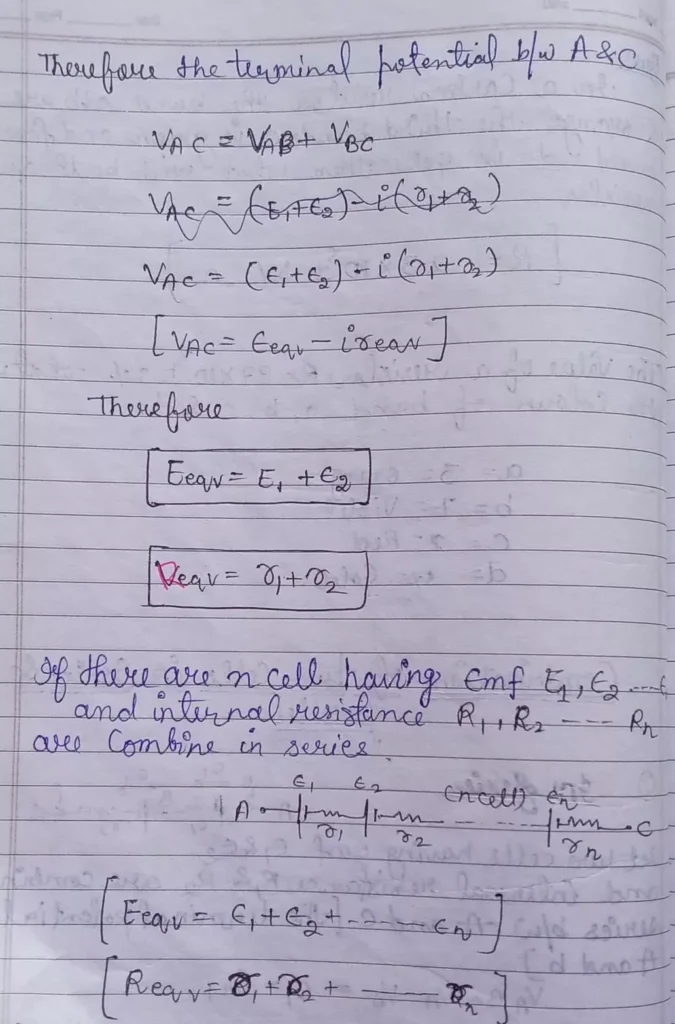 Therefore the terminal potential b/w A & C
VAC = VAB + VBC
VAC = (E1+E2) - i(r1+r2)
VAC = (ε1+ε2) - i(r1+r2)
[VAC = εeqv - ireqv]
Therefore
Eeqv = E1 + ε2
reqv = r1+r2
If there are n cell having Emf E1, ε2 ---- ε
and internal resistance R1, R2 ---- Rn
are Combine in series.
ε1 ε2 (ncell) εn
A C
r1 r2 rn
[Eeqv = ε1+ε2+------ εn]
[Reqv = r1+r2 + ------ rn]